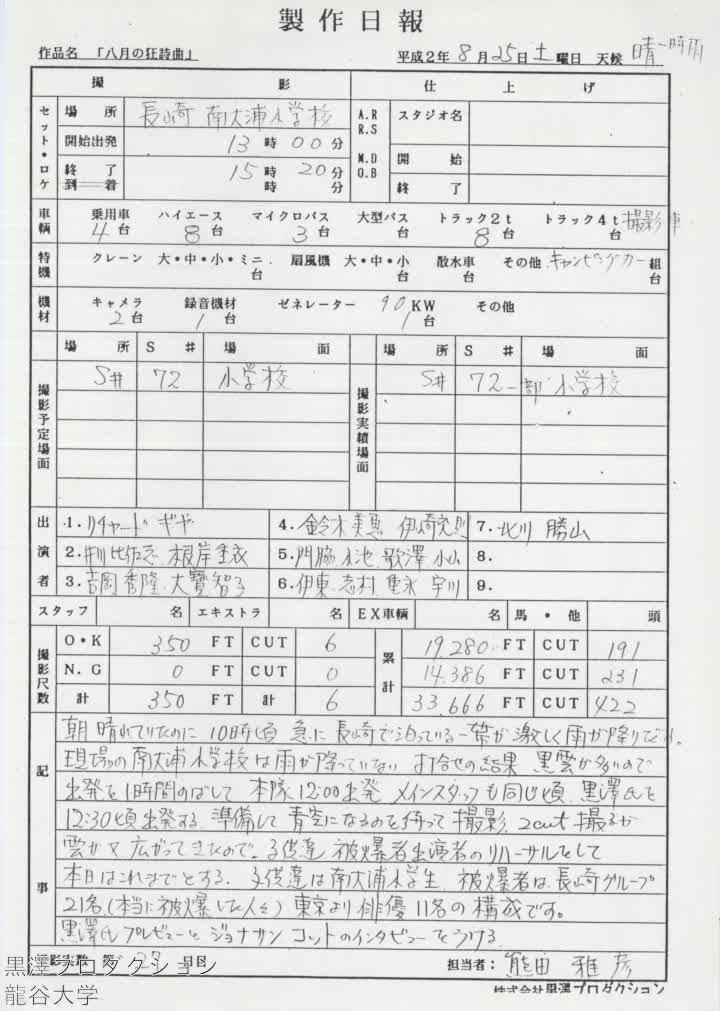 製作日報
作品名 「八月の狂詩曲」 平成2年 8月 25日 土 曜日 天候 晴一時雨
撮影 仕上げ
セット・ロケ 場所 長崎 南大浦小学校 A.R R.S スタジオ名
開始出発 13時 00分
終了 15時 20分 M.D O.B 開始
到着 時 分 終了
車輌 乗用車 ハイエース マイクロバス 大型バス トラック2t トラック4t 撮影車
4台 8台 3台 台 8台 台
特機 クレーン 大・中・小・ミニ 扇風機 大・中・小 散水車 その他 キャンピングカー 組
台 台 台 台
機材 キャメラ 録音機材 ゼネレーター 90KW その他
2台 1台 1台
場所 S# 場面 場所 S# 場面
撮影予定場面 S# 72 小学校 撮影実績場面 S# 72一部 小学校
出演者 1. リチャード ギヤ 4. 鈴木美恵 伊崎充則 7. 北川 勝山
2. 井川比佐志 根岸季衣 5. 門脇 小池 歌澤 小山 8.
3. 吉岡秀隆 大寶智子 6. 伊東 志村 重永 宇川 9.
スタッフ 名 エキストラ 名 EX車輌 名 馬・他 頭
撮影尺数 O・K 350 FT CUT 6 累計 19,280 FT CUT 191
N.G 0 FT CUT 0 14,386 FT CUT 231
計 350 FT 計 6 33,666 FT CUT 422
記事 朝 晴れていたのに 10時頃 急に 長崎で泊っている一帯が激しく雨が降りだす。
現場の南大浦小学校は雨が降っていない 打合せの結果 黒雲が多いので
出発を1時間のばして 本隊12:00出発 メインスタッフも同じ頃 黒澤氏を
12:30頃出発する 準備して 青空になるのを待って撮影 2cut撮るが
雲が又広がってきたので。子供達 被爆者出演者のリハーサルをして
本日はこれまでとする。子供達は南大浦小学生 被爆者は長崎グループ
21名(本当に被爆した人々) 東京より俳優11名の構成です。
黒澤氏 プレビューと ジョナサン コットのインタビューをうける
撮影実数 第 27 日目 担当者: 熊田 雅彦
株式会社黒澤プロダクション
黒澤プロダクション
龍谷大学